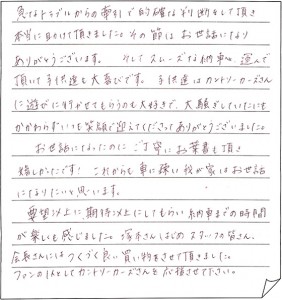 急なトラブルからの牽引で的確な判断をして頂き
本当に助けて頂きました。その節はお世話になり
ありがとうございます。 そしてスムーズな納車、選んで
頂いて子供達も大喜びです。 子供達はカントリーカーズさん
に遊びに行かせてもらうのも大好きで、大騒ぎしていたにも
かかわらずいつも笑顔で迎えてくださってありがとうございました。
お世話になったのに ご丁寧にお葉書も頂き
嬉しかったです! これからも車に疎い我が家はお世話
になりたいと思います。
要望以上に期待以上にしてもらい納車までの時間
が楽しも感じました。塚本さんはじめスタッフの皆さん、
会長さんにはつくづく良い買い物をさせて頂きました。
ファンの1人としてカントリーカーズさんを応援させて下さい。